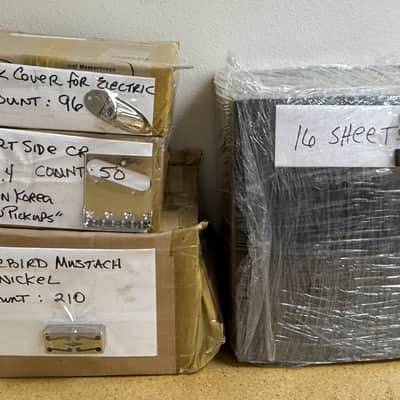 K COVER FOR ELECTRIC
OUNT : 96
RT SIDE CR
.4 COUNT 50
N KOREA
PICKUPS"
EBIRD MUSTACH
NICKEL
OUNT : 210
16 SHEETS